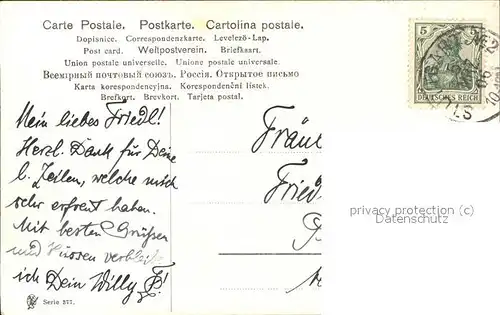 Carte Postale. Postkarte. Cartolina postale.
Dopisnice. Correspondenzkarte. Levelező-Lap.
Post card. Weltpostverein. Briefkaart.
Union postale universelle. Unione postale universale.
Всемірный почтовый союзъ. Россія. Открытое письмо
Karta korespondencyjna. Korespondenční lístek.
Brefkort. Brevkort. Tarjeta postal.
5 5
DEUTSCHES REICH
Mein liebes Friedl!
Herzl. Dank für Deine
l. Zeilen, welche mich
sehr erfreut haben.
Mit besten Grüßen
und Küssen verbleibe
ich Dein Willy
Fräu
Fried
privacy protection (c)
Datenschutz
Serie 377.